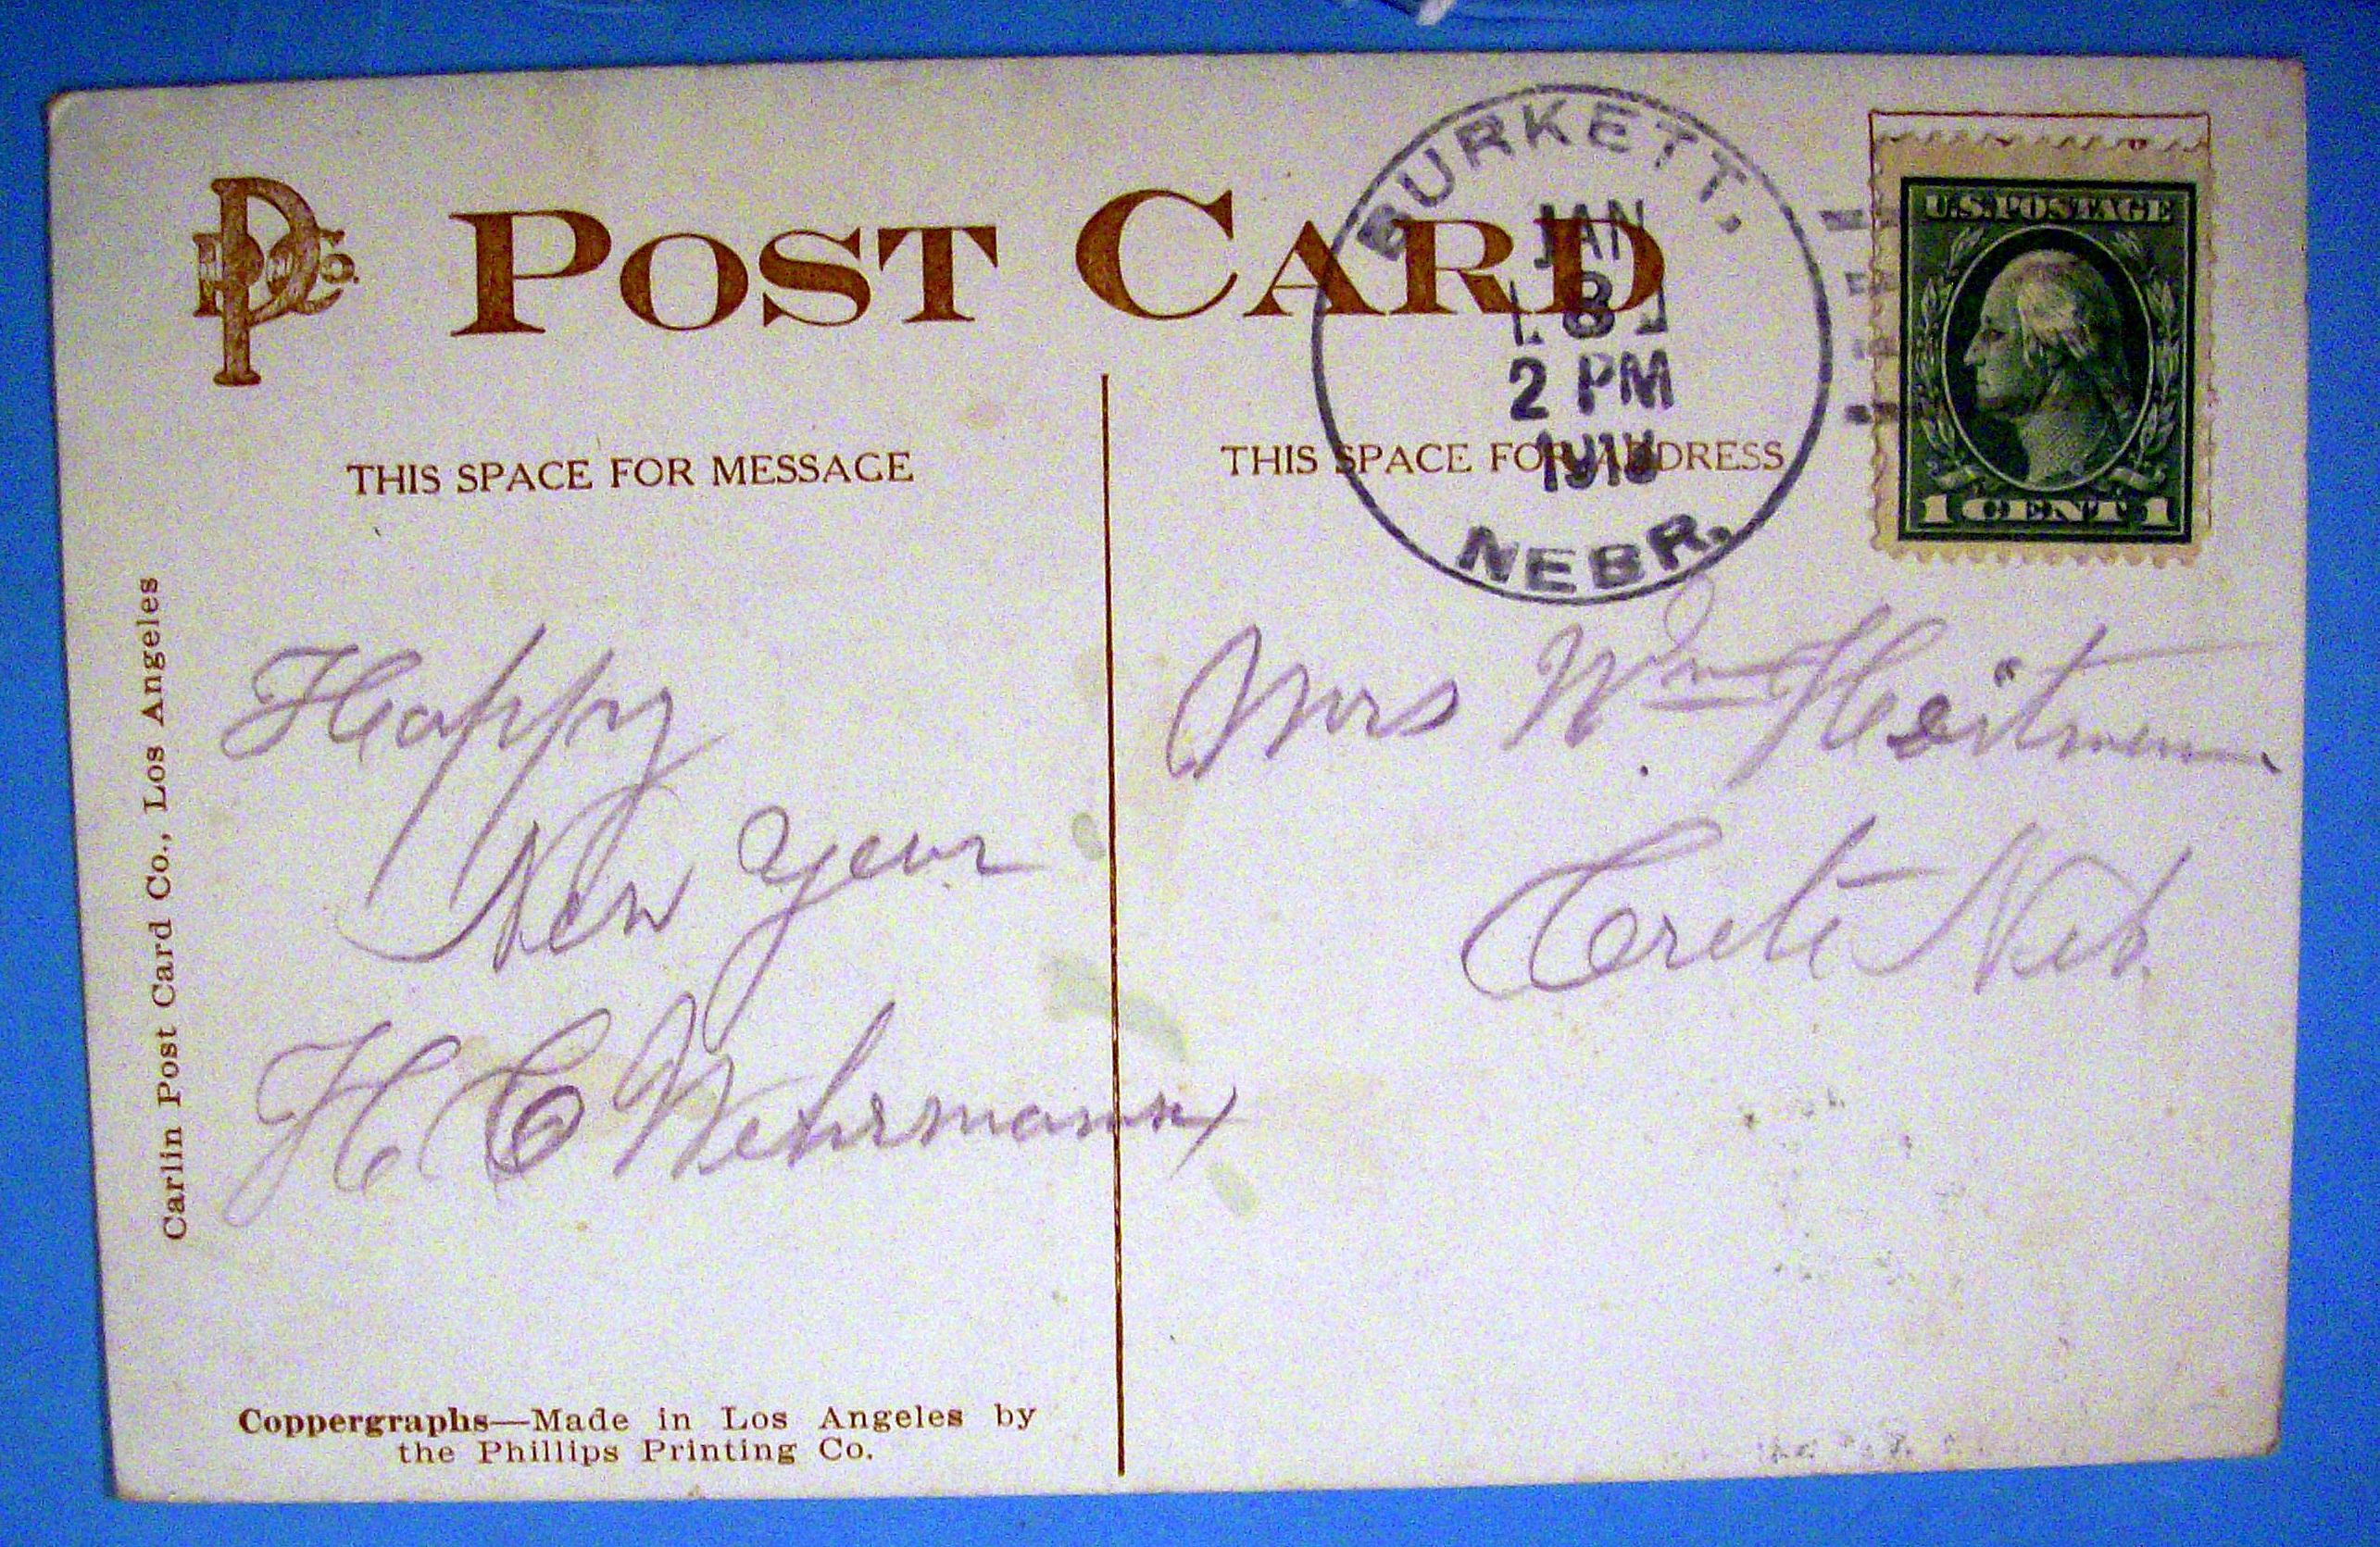 POST CARD
BURKETT,
JAN
3
2 PM
NEBR.
U.S. POSTAGE
1 CENT 1
THIS SPACE FOR MESSAGE
THIS SPACE FOR ADDRESS
Happy
New Year
H C Wehrmann
Mrs Wm Heitman
Crete Neb.
Carlin Post Card Co., Los Angeles
Coppergraphs—Made in Los Angeles by
the Phillips Printing Co.